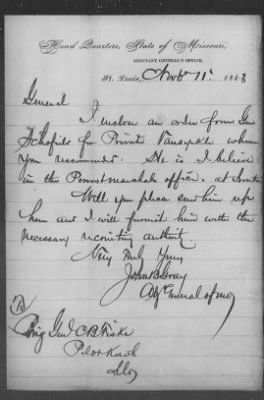 Head Quarters, State of Missouri,
ADJUTANT GENERAL'S OFFICE,
St. Louis, Novbr 11. 1863
General
I enclose an order from Gen
Schofield for Private Vansyckle whom
you recommend. He is I believe
in the Provost marshals office. at
Will you please send him up
here and I will furnish him with the
necessary recruiting authority
Very truly Yours
John B Gray
Adj General of Mo
To
Brig Genl C B Fiske
Pilot Knob
Mo